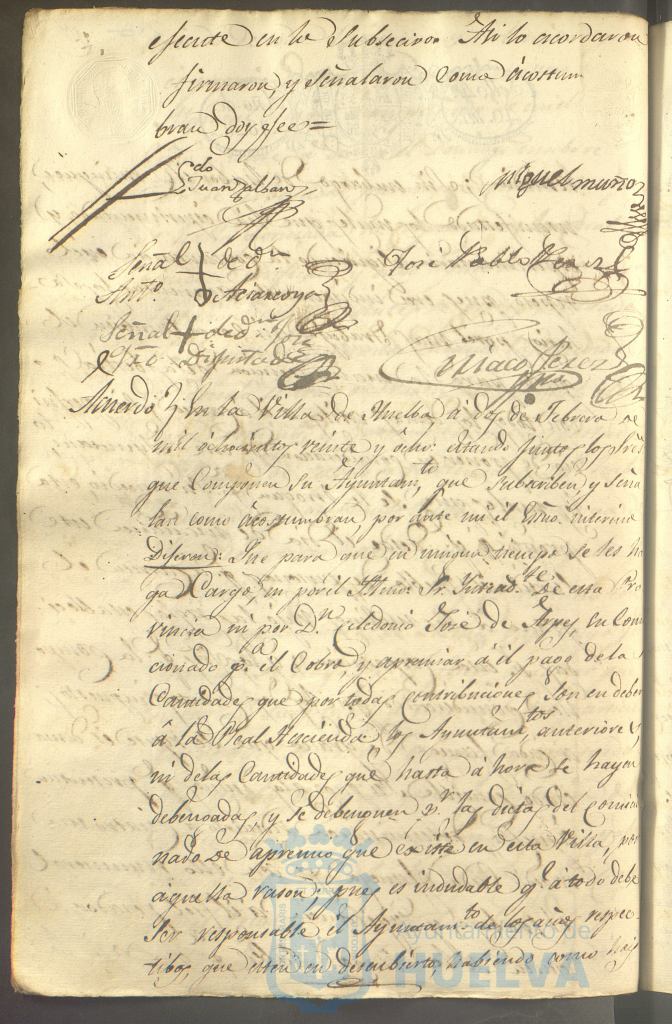 efecute en lo Subsecivo. Asi lo acordaron
firmaron, y señalaron como acostum
bran doy fee =
Ldo
Juan Alban
Miguel Muñoz
Señal de Dn
Anto.
José Pablo Perez
Señal de Dn
Diputado
Perez
Acuerdo En la Villa de Huelba, á dos de Febrero de
mil ochocientos veinte y ocho: estando juntos los Sres
que componen su Ayuntamto, que subscriben, y seña
lan como acostumbran por ante mi el Esno. interino
Dijeron: Que para que en ningun tiempo se les ha
ga Cargo, ni por el Sr. Intendte de esta Pro
vincia ni por Dn Celedonio José de comi
cionado pa. el Cobro, y apremiar á el pago de la
Cantidades que por todas contribuciones son en deber
á la Real Hacienda los Ayuntamtos anteriores,
ni de las Cantidades que hasta á hora se hayan
debengadas, y se debenguen pr. las dietas del comicio
nado de apremio que existe en esta Villa, por
aquella rason; pues es indudable qe. á todo debe
ser responsable el Ayuntamto. de los años respec
tibos, que esten en descubierto, habiendo como hay
Ayuntamiento de
HUELVA